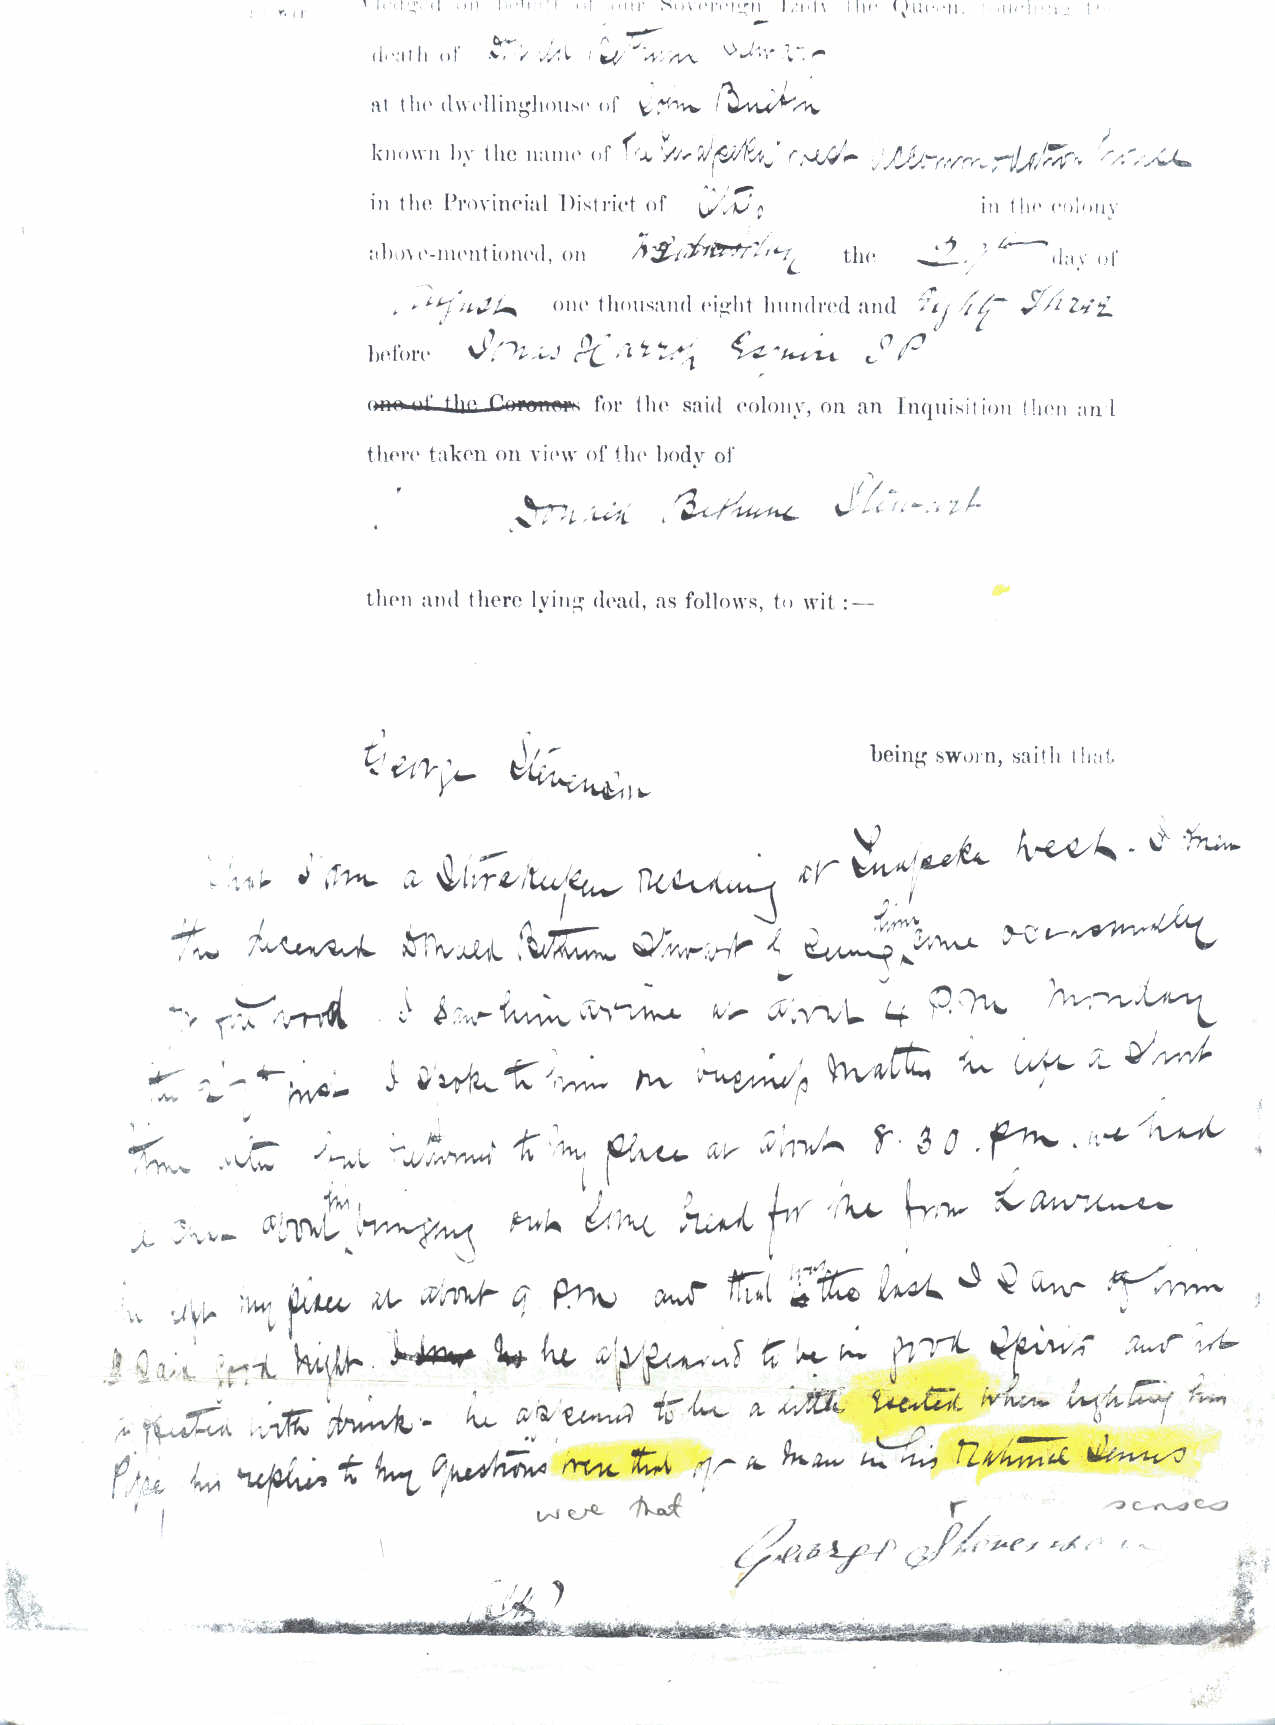 on behalf of our Sovereign Lady the Queen, touching the
death of Donald Bethune Stewart
at the dwellinghouse of John
known by the name of The Tuapeka West Accommodation House
in the Provincial District of Otago in the colony
above-mentioned, on Wednesday the 29th day of
August one thousand eight hundred and Eighty Three
before Jonas Harrop Esquire J P
one of the Coroners for the said colony, on an Inquisition then and
there taken on view of the body of
Donald Bethune Stewart
then and there lying dead, as follows, to wit :—
George Stevenson being sworn, saith that
that I am a Storekeeper residing at Tuapeka West. I knew
the deceased Donald Bethune Stewart by seeing him come occasionally
for wood. I saw him arrive at about 4 P.M Monday
the 27th inst I spoke to him on business matters he left a short
time after and returned to my place at about 8.30.pm. we had
about his bringing out some bread for me from Lawrence
he left my place at about 9 P.M and that was the last I saw of him
I said good night. I saw he he appeared to be in good spirits and not
affected with drink - he appeared to be a little excited when lighting his
Pipe his replies to my questions were that of a man in his natural senses
were that r senses
George Stevenson